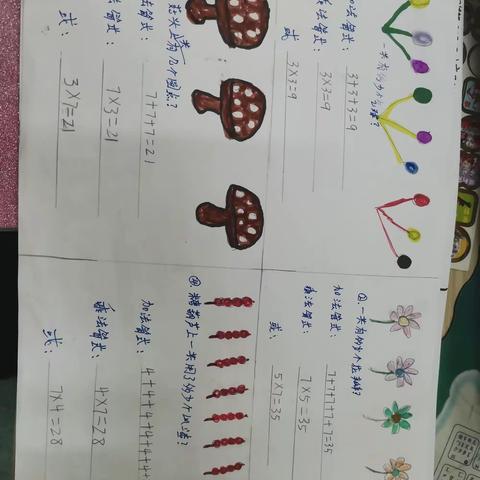 一共有多少个气球?
加法算式: 3+3+3=9
法算式: 3×3=9
或 3×3=9
② 一共有多少个花瓣?
加法算式: 7+7+7+7+7=35
乘法算式: 7×5=35
或: 5×7=35
几个圆点?
法算式: 7+7+7=21
法算式: 7×3=21
或: 3×7=21
④ 糖葫芦上一共用了多少个山楂?
加法算式: 4+4+4+4+4+4+
乘法算式: 4×7=28
或: 7×4=28